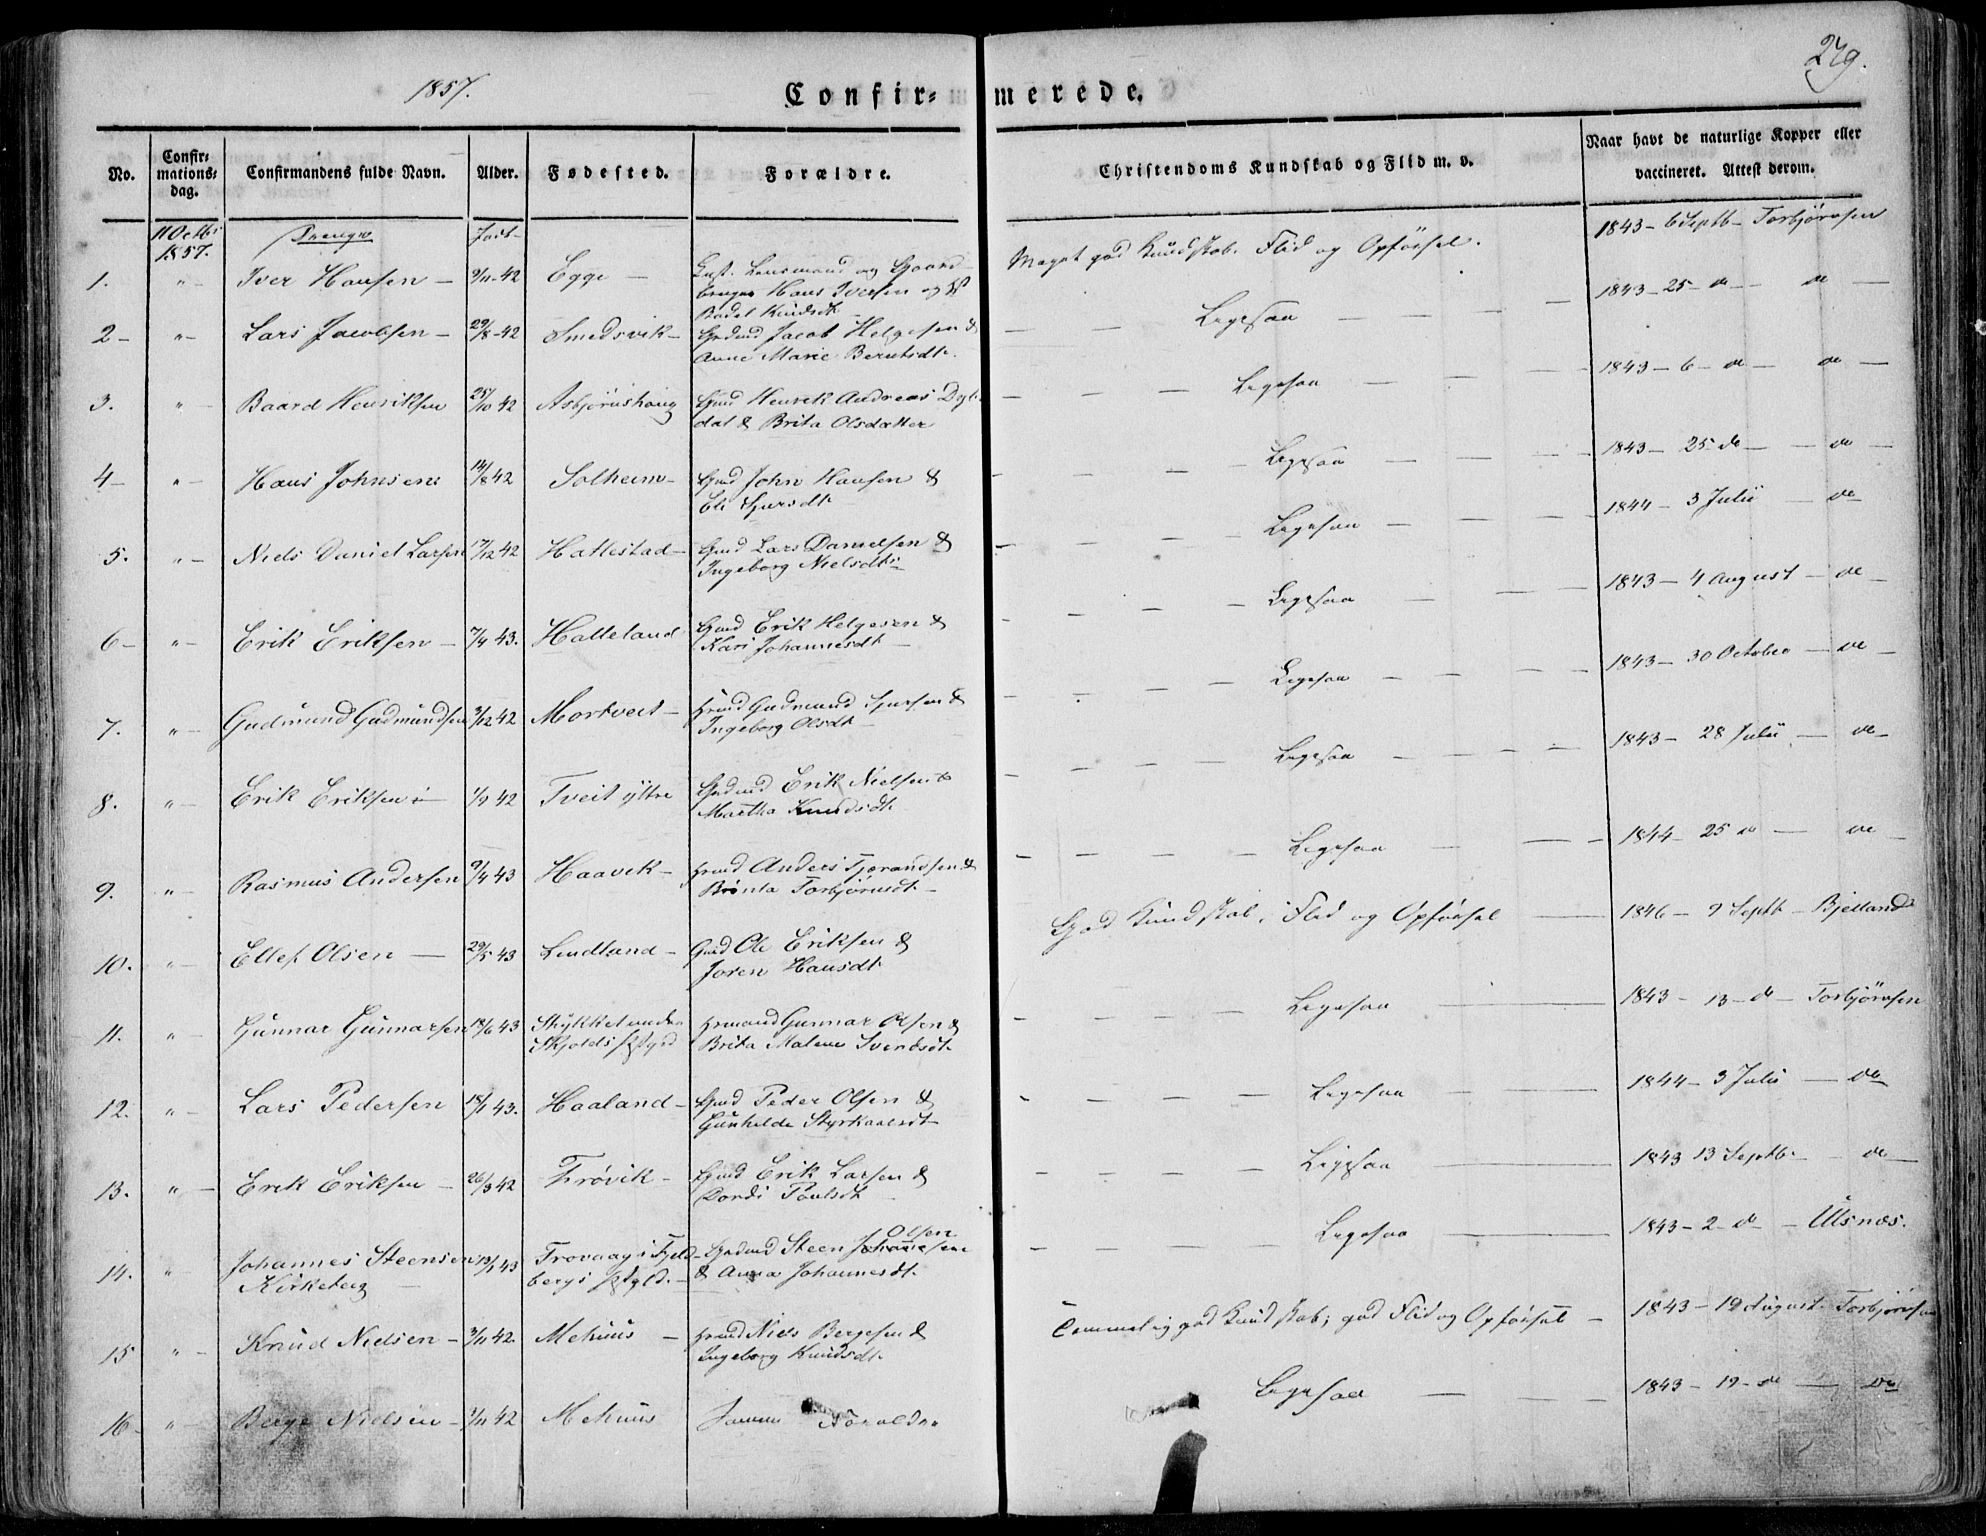 1857.
Confir=
merede.
279.
No.
Confir=
mations=
dag.
Confirmandens fulde Navn.
Alder.
Fødested.
Forældre.
Christendoms Kundskab og Flid m. v.
Naar havt de naturlige Kopper eller
vaccineret. Attest derom.
11 Octbr
1857.
Drenge
Født
1. " Iver Hansen — 9/11-42 Egge — Hans Iversen og
Bodel Knudsdt.
Meget god Kundskab. Flid og Opførsel. 1843 - 6 Septb - Torbjørnsen
2 - " Lars Jacobsen — 29/8-42 Smedsvik — Jacob Helgesen &
Anne Marie Berntsdt.
Ligesaa 1843 - 25 - do — do —
3. " Baard Henriksen 25/10 42 Asbjørnshaug Gmd Henrik Andreas
dal & Brita Olsdatter
Ligesaa 1843 - 6 - do — do —
4 - " Hans Johnsen 14/8 42 Solheim — Gmd John Hansen &
Eli Sjursdt.
Ligesaa 1843 - 25 do — do —
5. " Niels Daniel Larsen 17/12 42 Hallestad — Gmd Lars Danielsen &
Ingeborg Nielsdt.
Ligesaa 1844 - 3 Julii — do
6 - " Erik Eriksen — 7/4 43. Halleland Gmd Erik Helgesen &
Kari Johannesdt. —
Ligesaa 1843 - 4 August — do —
7. " Gudmund Gudmundsen 3/12 42 Mortveit — Hmd Gudmund Sjursen &
Ingeborg Olsdt. —
Ligesaa 1843 - 30 October — do —
8. " Erik Eriksen — 1/9 42 Tveit ytre Erik Nielsen &
Martha Knudsdt.
Ligesaa 1843 - 28 Julii — do —
9. " Rasmus Andersen 9/4 43 Haavik — Hmd Anders Tjerandsen &
Brita Torbjørnsdt. —
Ligesaa 1844 - 25 do — do —
10. " Ellef Olsen — 29/5 43 Lindland — Gmd Ole Eriksen &
Joren Hansdt.
God Kundskab, Flid og Opførsel — 1846 - 9 Septb - Bjelland
11. " Gunnar Gunnarsen 13/6 43 Stykket under
Skjolds Præstgd Gunnar Olsen &
Brita Malene Svendsdt.
Ligesaa 1843 - 13 - do - Torbjørnsen
12. " Lars Pedersen 18/1 43. Haaland — Gmd Peder Olsen &
Gunhilde Styrkaarsdt.
Ligesaa — 1844 - 3 Julii — do
13. " Erik Eriksen — 26/3 42 Frøvik — Gmd Erik Larsen &
Dordi Poulsdt.
Ligesaa — 1843 13 Septbr — do —
14. " Johannes Steensen
Kirkeberg — 13/1 43 Trovaag i Fjeld-
bergs Præstgjld. — Steen Johannesen Olsen
& Anna Johannesdt.
Ligesaa — 1843 - 2 - do - Ulsnæs.
15 " Knud Nielsen — 3/11 42. Mehuus — Hmd Niels Bergesen &
Ingeborg Knudsdt.
Temmelig god Kundskab; god Flid og Opførsel — 1843 - 19 August - Torbjørnsen
16 - " Berge Nielsen — 1/11 42 Mehuus Samme Forældre
Ligesaa — 1843 - 19 - do — do